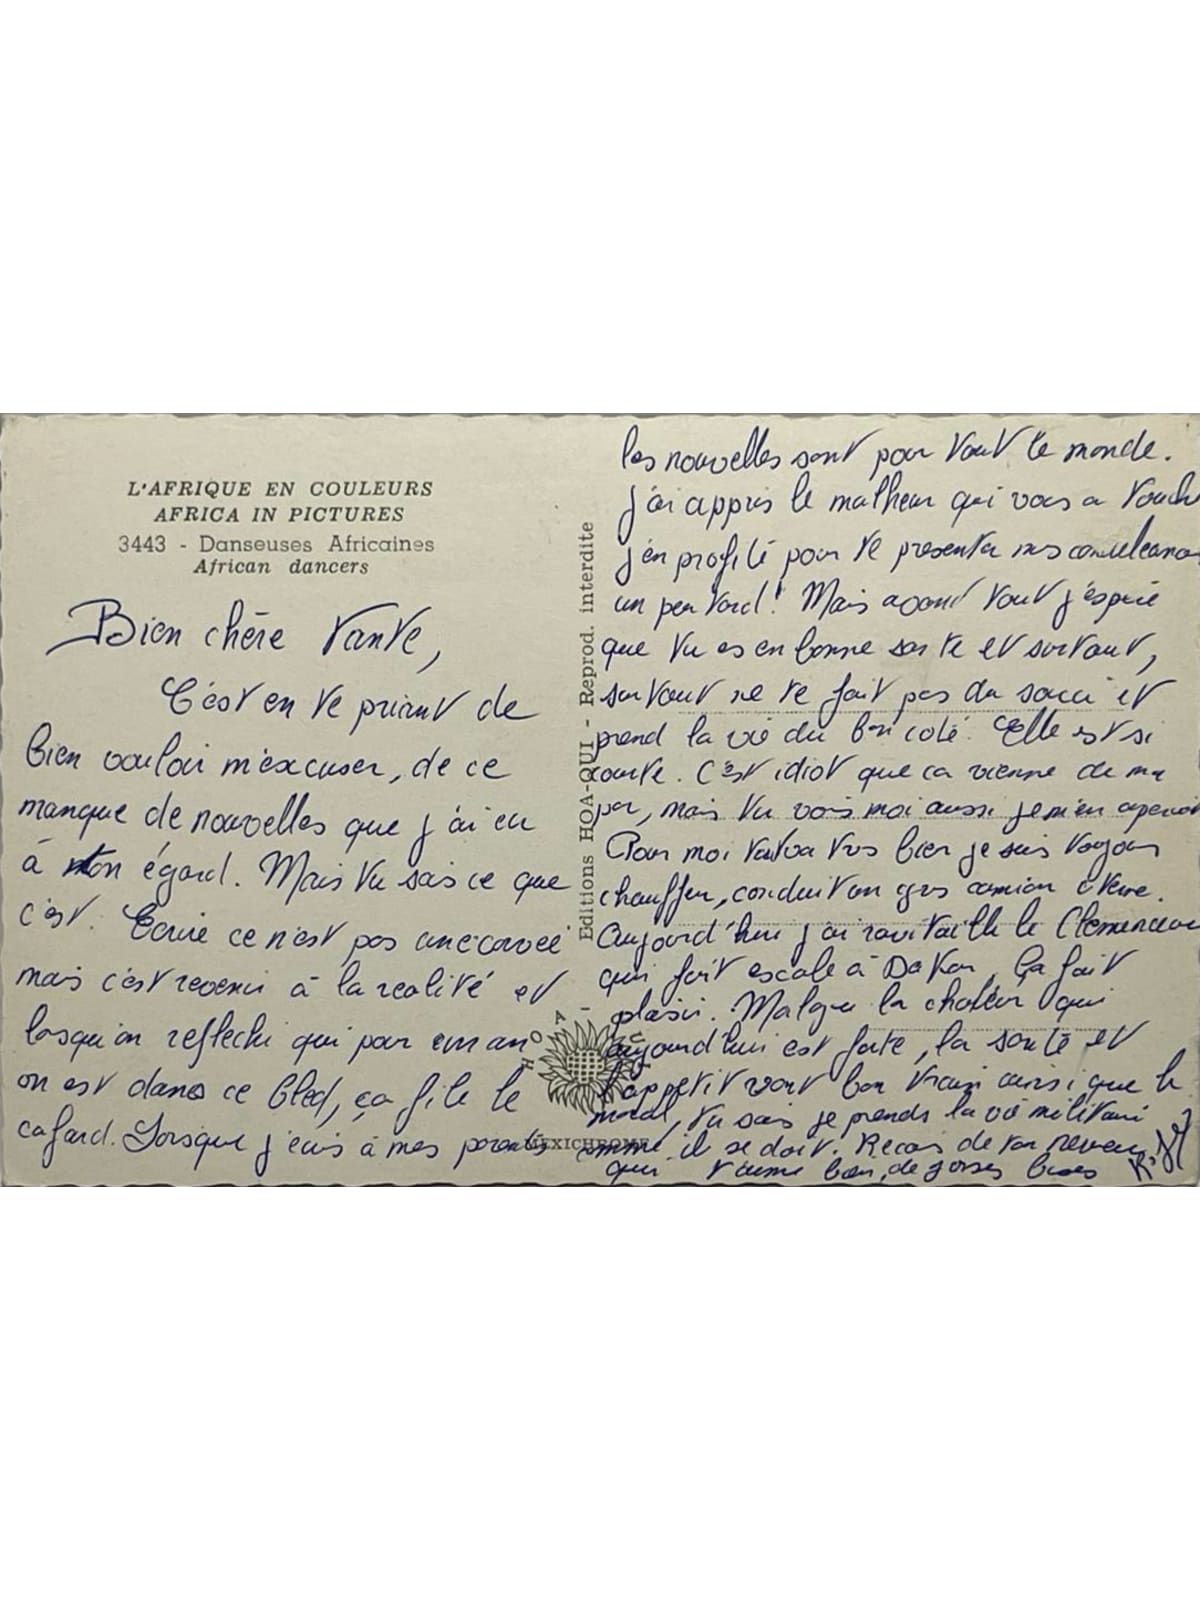 L'AFRIQUE EN COULEURS
AFRICA IN PICTURES
3443 - Danseuses Africaines
African dancers
Bien chère tante,
C'est en te priant de
bien vouloir m'excuser, de ce
manque de nouvelles que j'ai eu
à ton égard. Mais tu sais ce que
c'est. Ecrire ce n'est pas une corvée
mais c'est revenir à la realité et
lorsqu'on reflechi qui pour un an
on est dans ce bled, ça file le
cafard. Lorsque j'ecris à mes parents
Editions HOA-QUI - Reprod. interdite
HOA-QUI
MEXICHROME
les nouvelles sont pour tout le monde.
J'ai appris le malheur qui vous a touch
j'en profité pour te presenter mes
un peu tard! Mais avant tout j'espère
que tu es en bonne sante et surtout,
surtout ne te fait pas du souci et
prend la vie du bon coté. Elle est si
courte. C'est idiot que ca vienne de ma
par, mais tu vois moi aussi je m'en
Pour moi tres bien je suis toujours
chauffeur, conduit un gros camion
Aujourd'hui j'ai ravitaillé le Clemenceau
qui fait escale à Dakar, ça fait
plaisir. Malgre la chaleur qui
aujourd'hui est forte, la santé et
l'appetit vont bon train ainsi que le
moral, tu sais je prends la vie militaire
comme il se doit. Recois de ton neveu
qui t'aime bien, de grosses bises